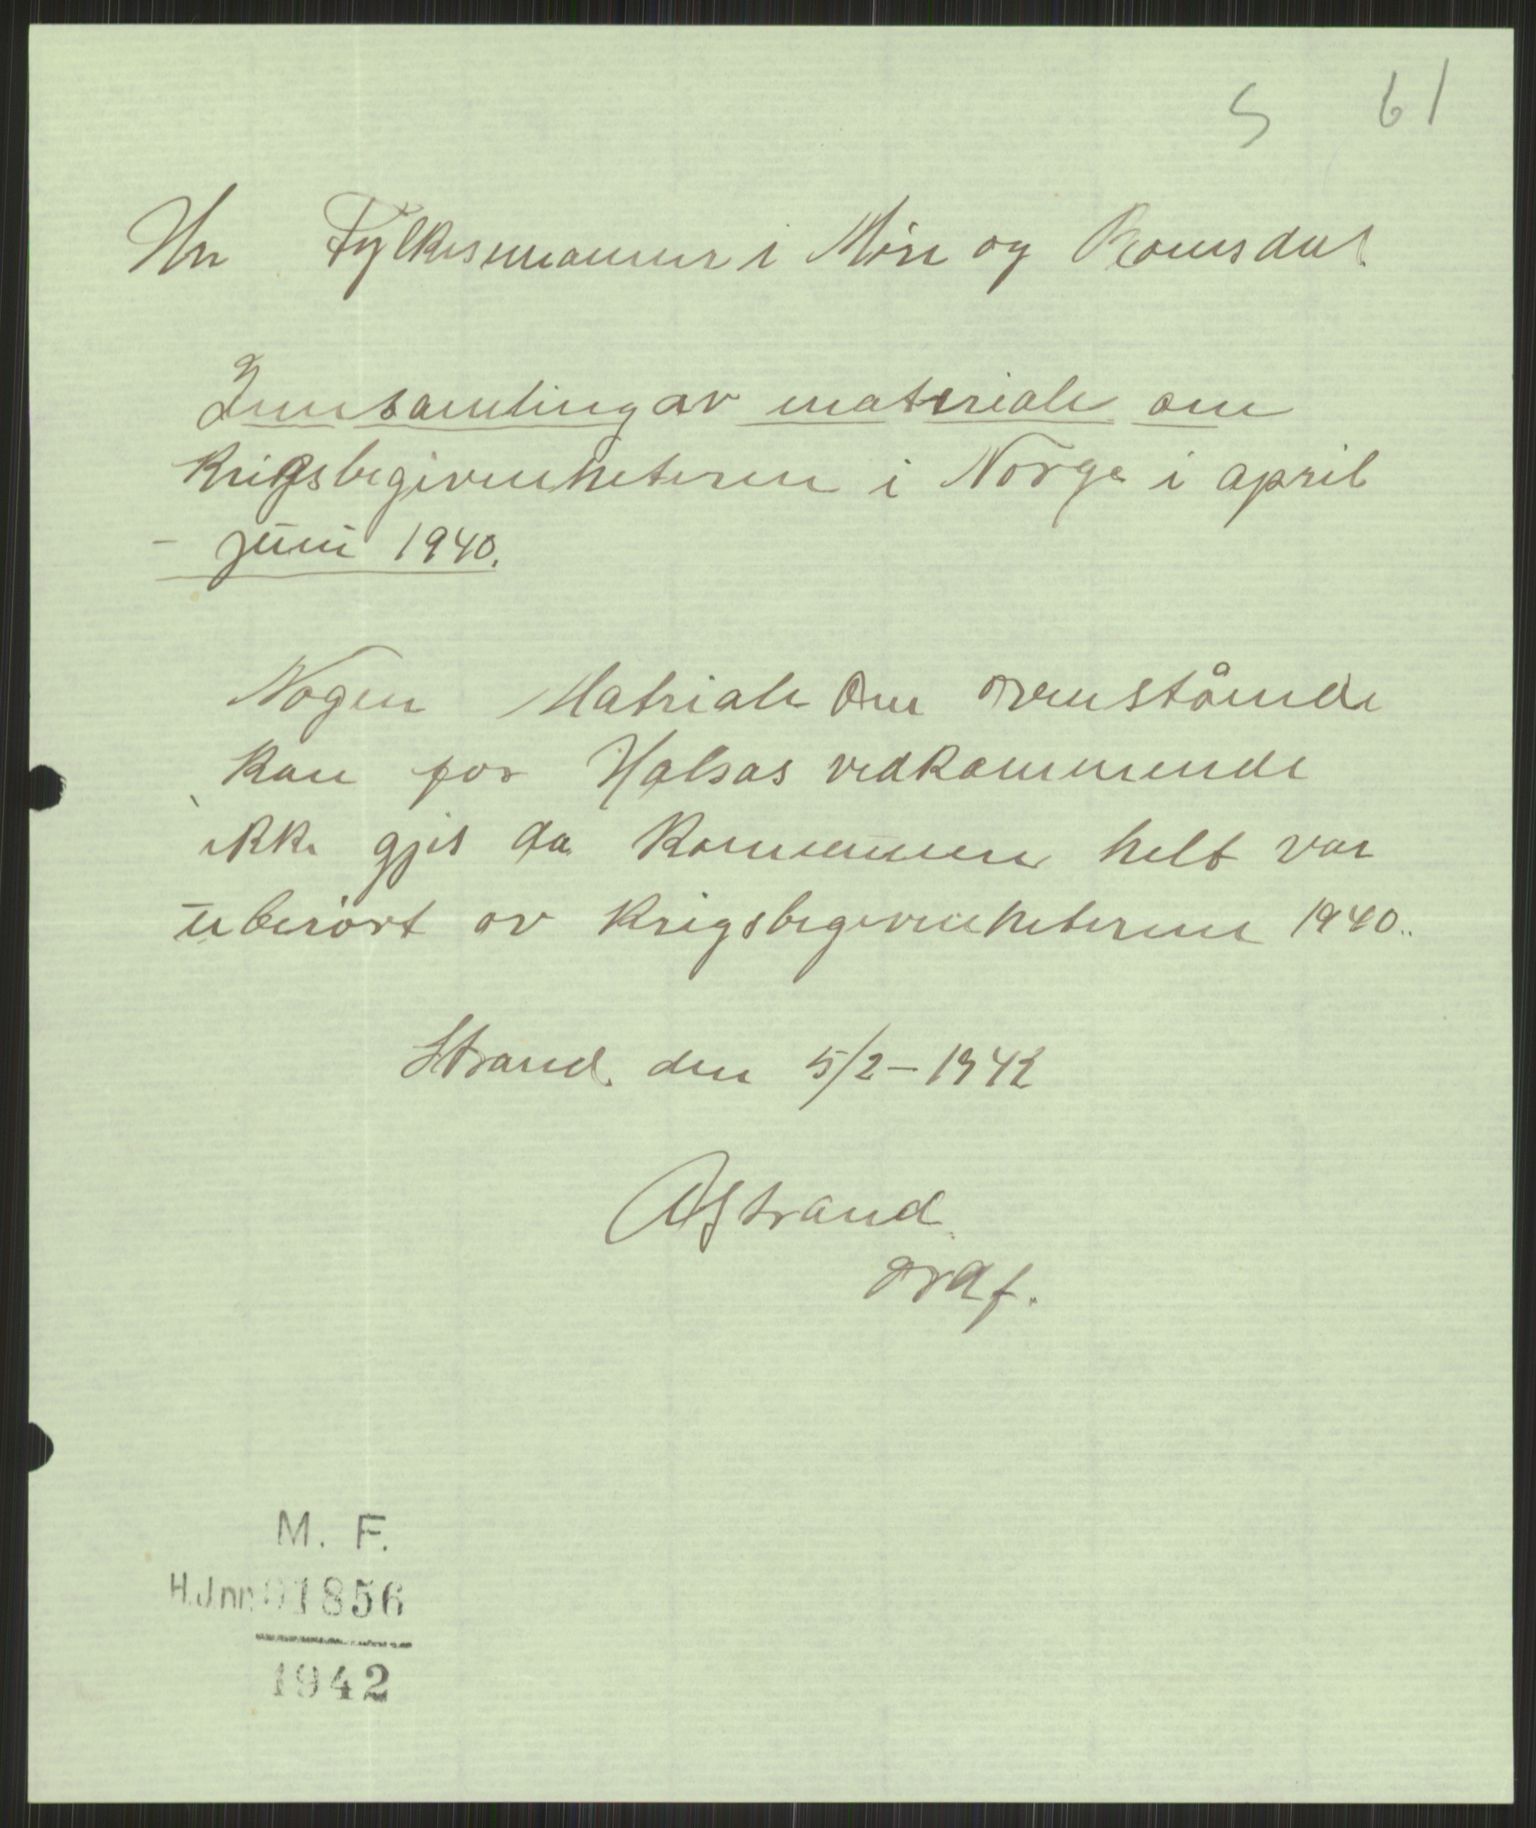 S 61
Hr Fylkesmannen i Møre og Romsdal.
Innsamling av materiale om
krigsbegivenhetene i Norge i april
- juni 1940.
Nogen Matriale om ovenstående
kan for Halsas vedkommende
ikke gjis da kommunen helt var
uberørt av krigsbegivenhetene 1940.
Strand den 5/2 - 1942
A Strand
ordf.
M. F.
H.J.nr. 01856
1942